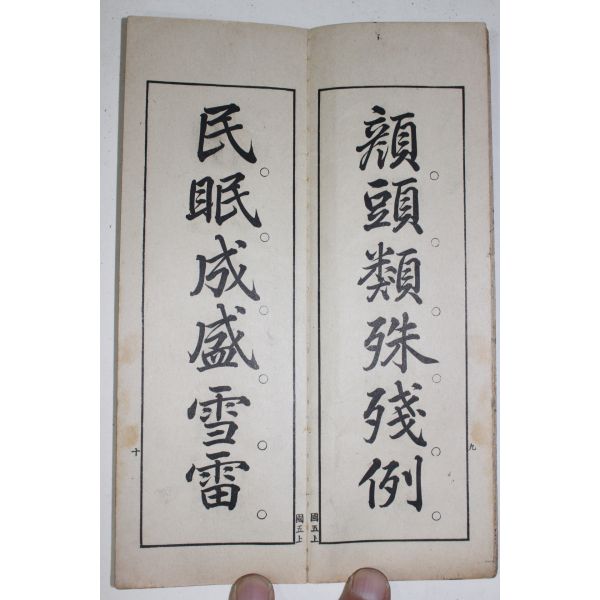 顔頭類殊残例
九
國五上
國五上
民眠成盛雪雷
十